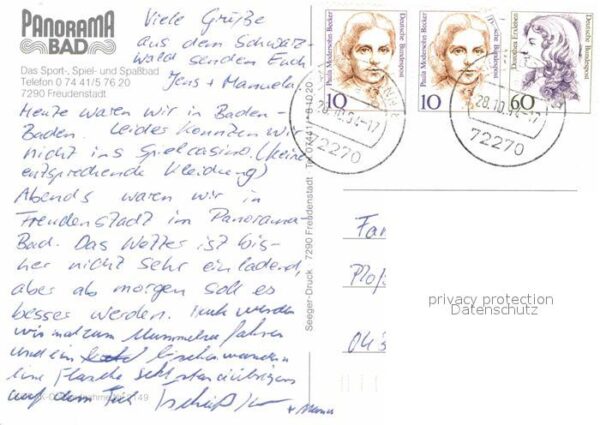 PANORAMA
BAD
Das Sport-, Spiel- und Spaßbad
Telefon 0 74 41/5 76 20
7290 Freudenstadt
Viele Grüße
aus dem Schwarz-
wald senden Euch
Jens + Manuela
Heute waren wir in Baden-
Baden. Leider konnten wir
nicht ins Spielcasino. (keine
entsprechende Kleidung)
Abends waren wir in
Freudenstadt im Panorama-
Bad. Das Wetter ist bis-
her nicht sehr einladend,
aber ab morgen soll es
besser werden. werden
wir mal zum Mummelsee fahren
und ein bischen wandern
eine Flasche steht übrigens
auf dem Tisch
Seeger-Druck · 7290 Freudenstadt · Tel. 07441
Paula Modersohn-Becker
Deutsche Bundespost
10
Paula Modersohn-Becker
Deutsche Bundespost
10
Dorothea Erxleben
Deutsche Bundespost
60
28.10.94-17
72270
28.10.94-17
72270
Fa
privacy protection
Datenschutz